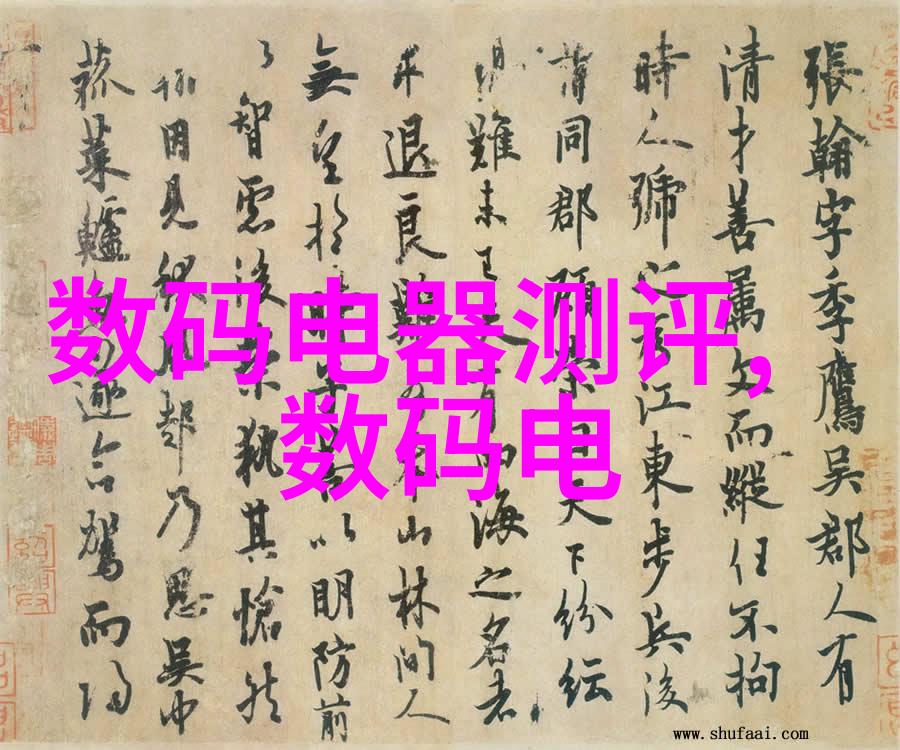 張翰字季鷹吳郡人有
清才善屬文而縱任不拘
時人號之為江東步兵後
同郡顧榮曰天下紛紜
難未已有海之名者
求退良難山林間人
無望於以明防前
智慮後執其愴然
因見乃思吳中
菰菜鱸命駕而歸
数码电器测评,
数码电
www.shufaai.com